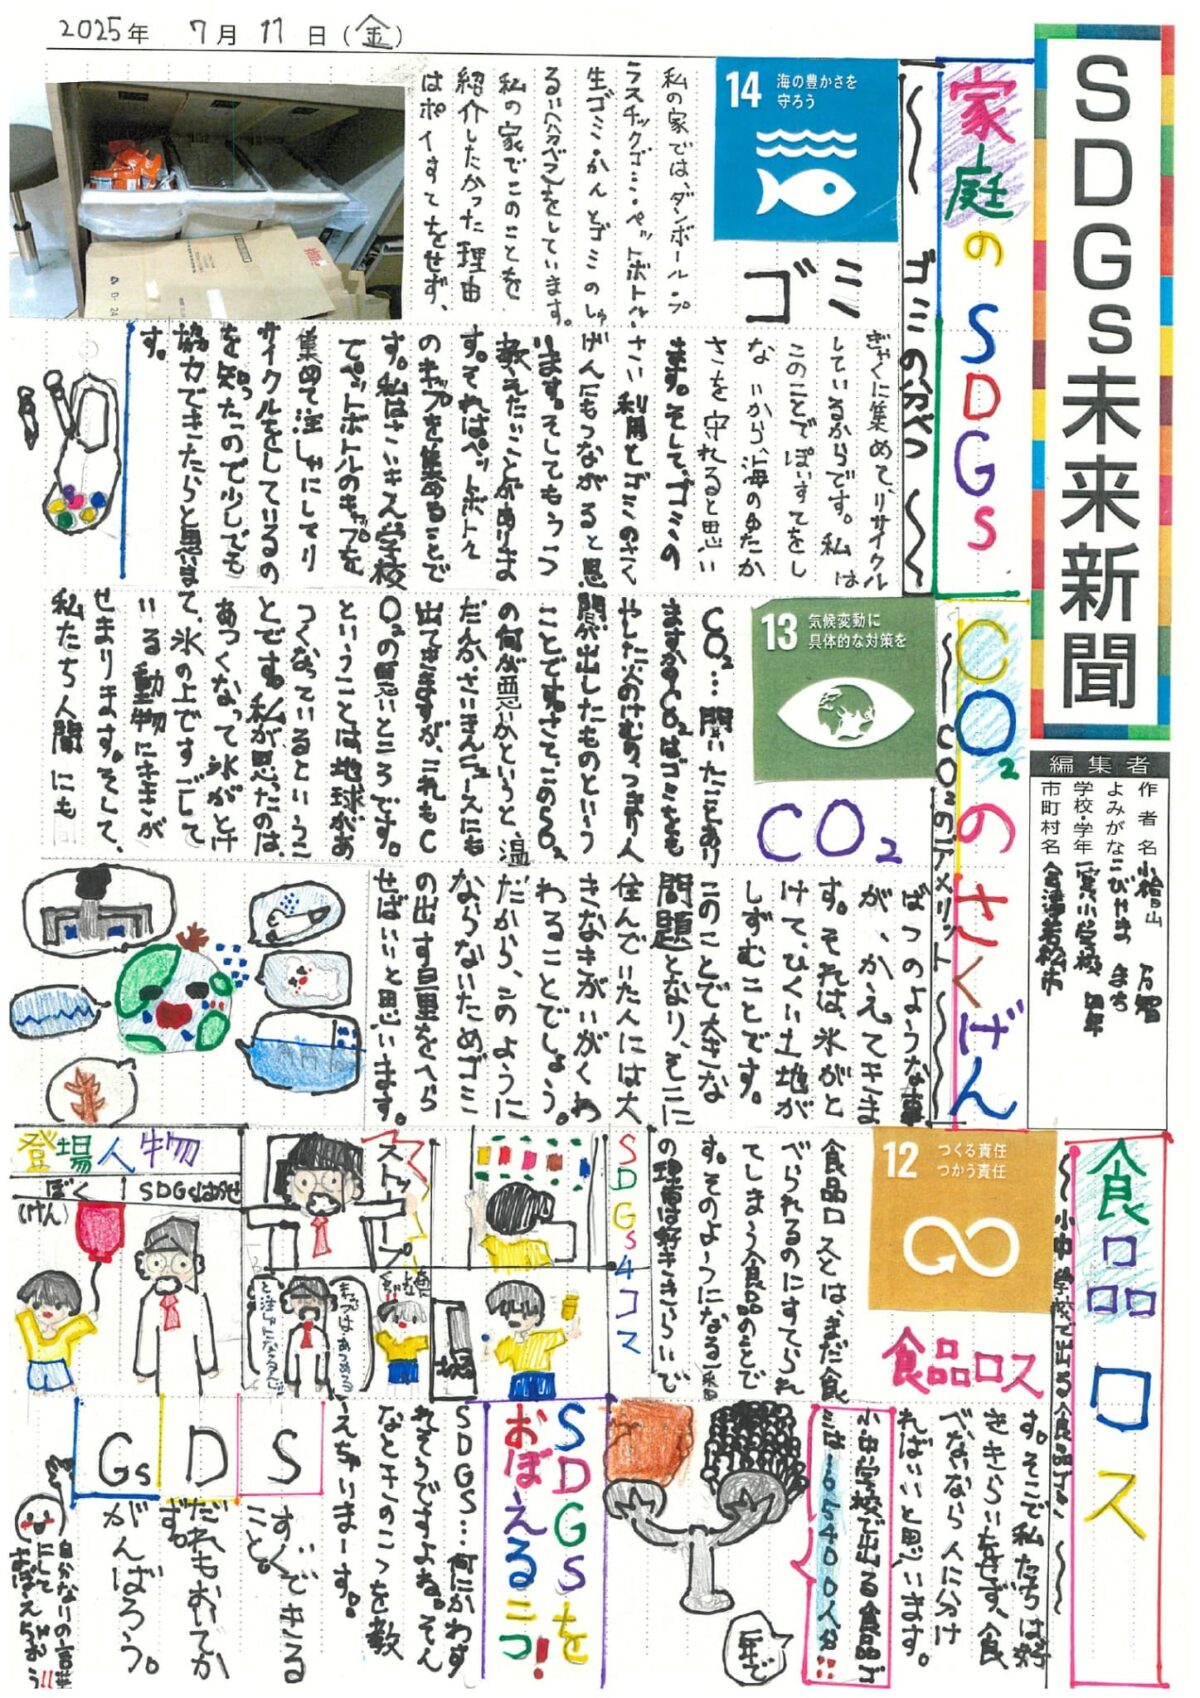 2025年 7月 11日(金)
SDGs未来新聞
編集者
作者名 小檜山 万智
よみがな こひやま まち
学校・学年 一箕小学校 四年
市町村名 会津若松市
家庭のSDGs
〜 ゴミの分べつ 〜
14 海の豊かさを
守ろう
ゴミ
私の家では、ダンボール・プ
ラスチックゴミ・ペットボトル・
生ゴミ・かんとゴミのしゅ
るい分べつをしています。
私の家でこのことを
紹介したかった理由
はポイすてをせず、
ぎゃくに集めて、リサイクル
しているからです。私は
このことでぽいすてをし
ないから、海のゆたか
さを守れると思い
ます。そして、ゴミの
さい利用とゴミのさく
げんにもつながると思
います。そしてもう一つ
教えたいことがありま
す。それはペットボトル
のキャプを集めることで
す。私はさいきん学校
でペットボトルのキャプを
集めて注しゃにしてリ
サイクルをしているの
を知ったので少しでも
協力できたらと思いま
す。
CO₂のさくげん
〜 CO₂のデメリット 〜
13 気候変動に
具体的な対策を
CO₂
CO₂…聞いたことあり
ますか?CO₂はゴミをも
やした次のけむり、つまり人
間が出したものという
ことです。さて、このCO₂
の何が悪いかというと、温
だんか、さいきんニュースにも
出てきますが、これもC
O₂の悪いところです。
ということは地球があ
つくなっているというこ
とです。私が思ったのは、
あつくなって氷がとけ
て、氷の上ですごして
いる動物にききが
せまります。そして、
私たち人間にも
ばつのような事
が、かえってきま
す。それは、氷がと
けて、ひくい土地が
しずむことです。
このことで大きな
問題となり、そこに
住んでいた人には大
きなきがいがくわ
わることでしょう。
だから、このように
ならないためゴミ
の出す量をへら
せばいいと思います。
食品ロス
〜小中学校で出る食品ゴミ〜
12 つくる責任
つかう責任
食品ロス
食品ロスとは、まだ食
べられるのにすてられ
てしまう食品のことで
す。そのようになる一番
の理由は好ききらいで
す。そこで私たちは好
ききらいをせず、食
べないなら人に分け
ればいいと思います。
小中学校で出る食品ゴ
ミは165400人分!!
一年で
SDGs4コマ
ストープ
登場人物
ぼく
(けん)
SDGsはかせ
SDGsを
おぼえるコツ!
SDGs…何にかわす
れそうですよね。そん
なときのコツを教
えちゃいまーす。
S
すぐできる
こと。
D
だれもおいてか
ず。
Gs
がんばろう。
自分なりの言葉
にして
おぼえちゃお
う!!